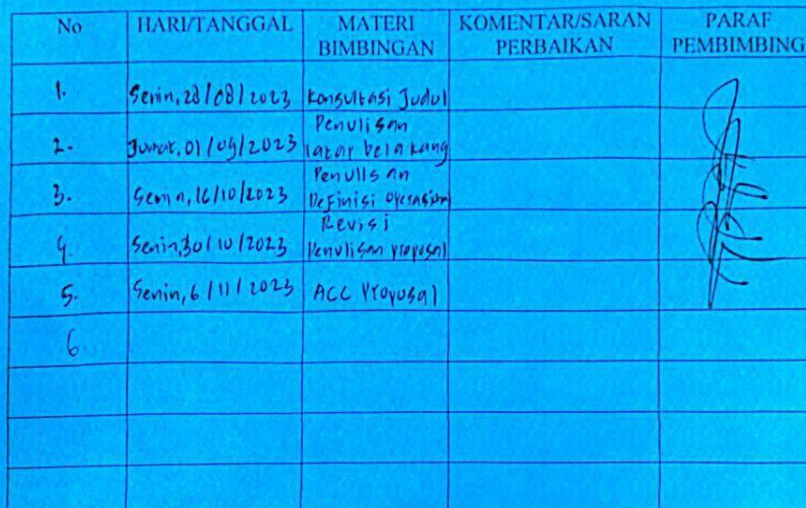 No HARI/TANGGAL MATERI BIMBINGAN KOMENTAR/SARAN PERBAIKAN PARAF PEMBIMBING
1. Senin, 28/08/2023 Konsultasi Judul
2. Jumat, 01/09/2023 Penulisan latar belakang
3. Senin, 16/10/2023 Penulisan Definisi Operasional
4. Senin, 30/10/2023 Revisi Penulisan Proposal
5. Senin, 6/11/2023 ACC Proposal
6.